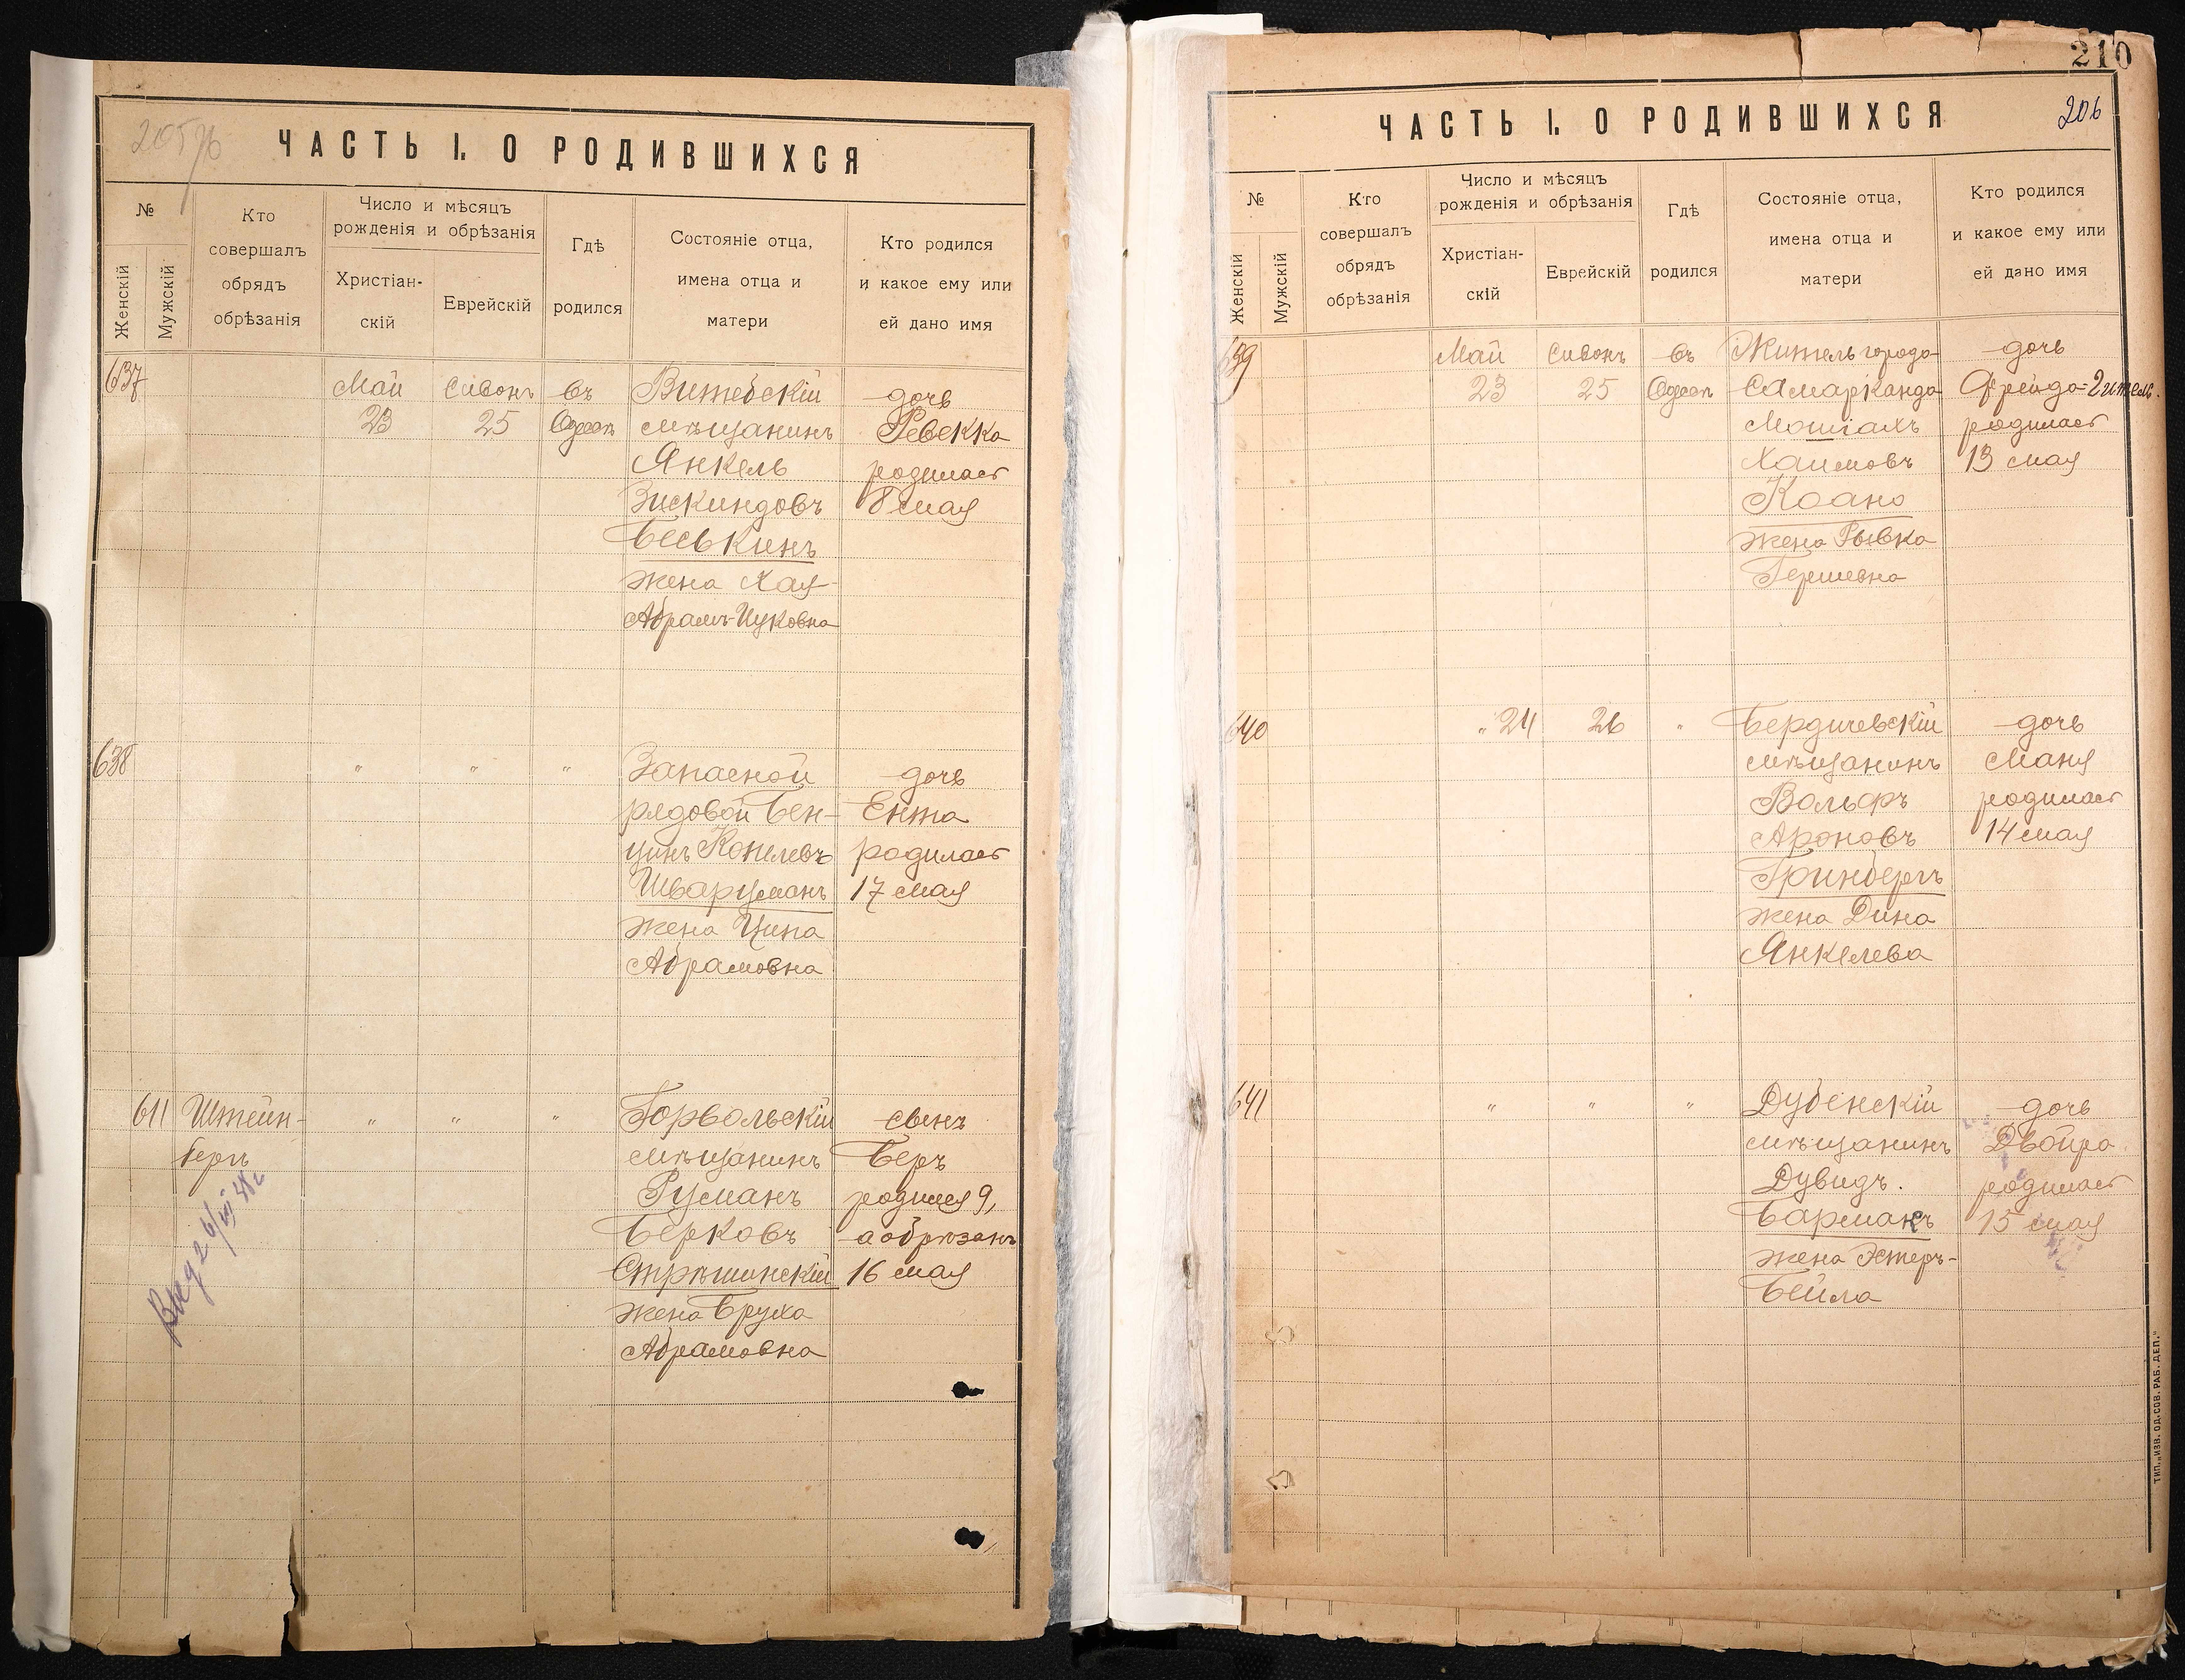 205 об
ЧАСТЬ I. О РОДИВШИХСЯ
№
Женскій
Мужскій
Кто
совершалъ
обрядъ
обрѣзанія
Число и мѣсяцъ
рожденія и обрѣзанія
Христіан-
скій
Еврейскій
Гдѣ
родился
Состояніе отца,
имена отца и
матери
Кто родился
и какое ему или
ей дано имя
637 Май Сивонъ въ Витебскій дочь
23 25 Одессѣ мѣщанинъ Ревекка
Янкель родилась
Зискиндовъ 8 мая
Беськинъ
жена Хая
Абрамъ-Ицковна
638 " " " Запасной дочь
рядовой Бен- Ента
ціонъ Копелевъ родилась
Шварцманъ 17 мая
жена Ципа
Абрамовна
611 Штейн- " " " Горвольскій сынъ
бергъ мѣщанинъ Беръ
Русманъ родился 9,
Берковъ а обрѣзанъ
Стрѣшинскій 16 мая
жена Бруха
Абрамовна
210
206
ЧАСТЬ I. О РОДИВШИХСЯ
№
Женскій
Мужскій
Кто
совершалъ
обрядъ
обрѣзанія
Число и мѣсяцъ
рожденія и обрѣзанія
Христіан-
скій
Еврейскій
Гдѣ
родился
Состояніе отца,
имена отца и
матери
Кто родился
и какое ему или
ей дано имя
639 Май Сивонъ въ Житель города дочь
23 25 Одессѣ Самарканда Фрейда-Гитель
Мошіахъ родилась
Хаимовъ 13 мая
Коано
жена Рывка
Гершевна
640 " 24 26 " Бердичевскій дочь
мѣщанинъ Маня
Вольфъ родилась
Ароновъ 14 мая
Гринбергъ
жена Дина
Янкелева
641 " " " Дубенскій дочь
мѣщанинъ Двойра
Дувидъ. родилась
Бармакъ 15 мая
жена Эстеръ-
Бейла
ТИП. „ИЗВ. ОД. СОВ. РАБ. ДЕП."